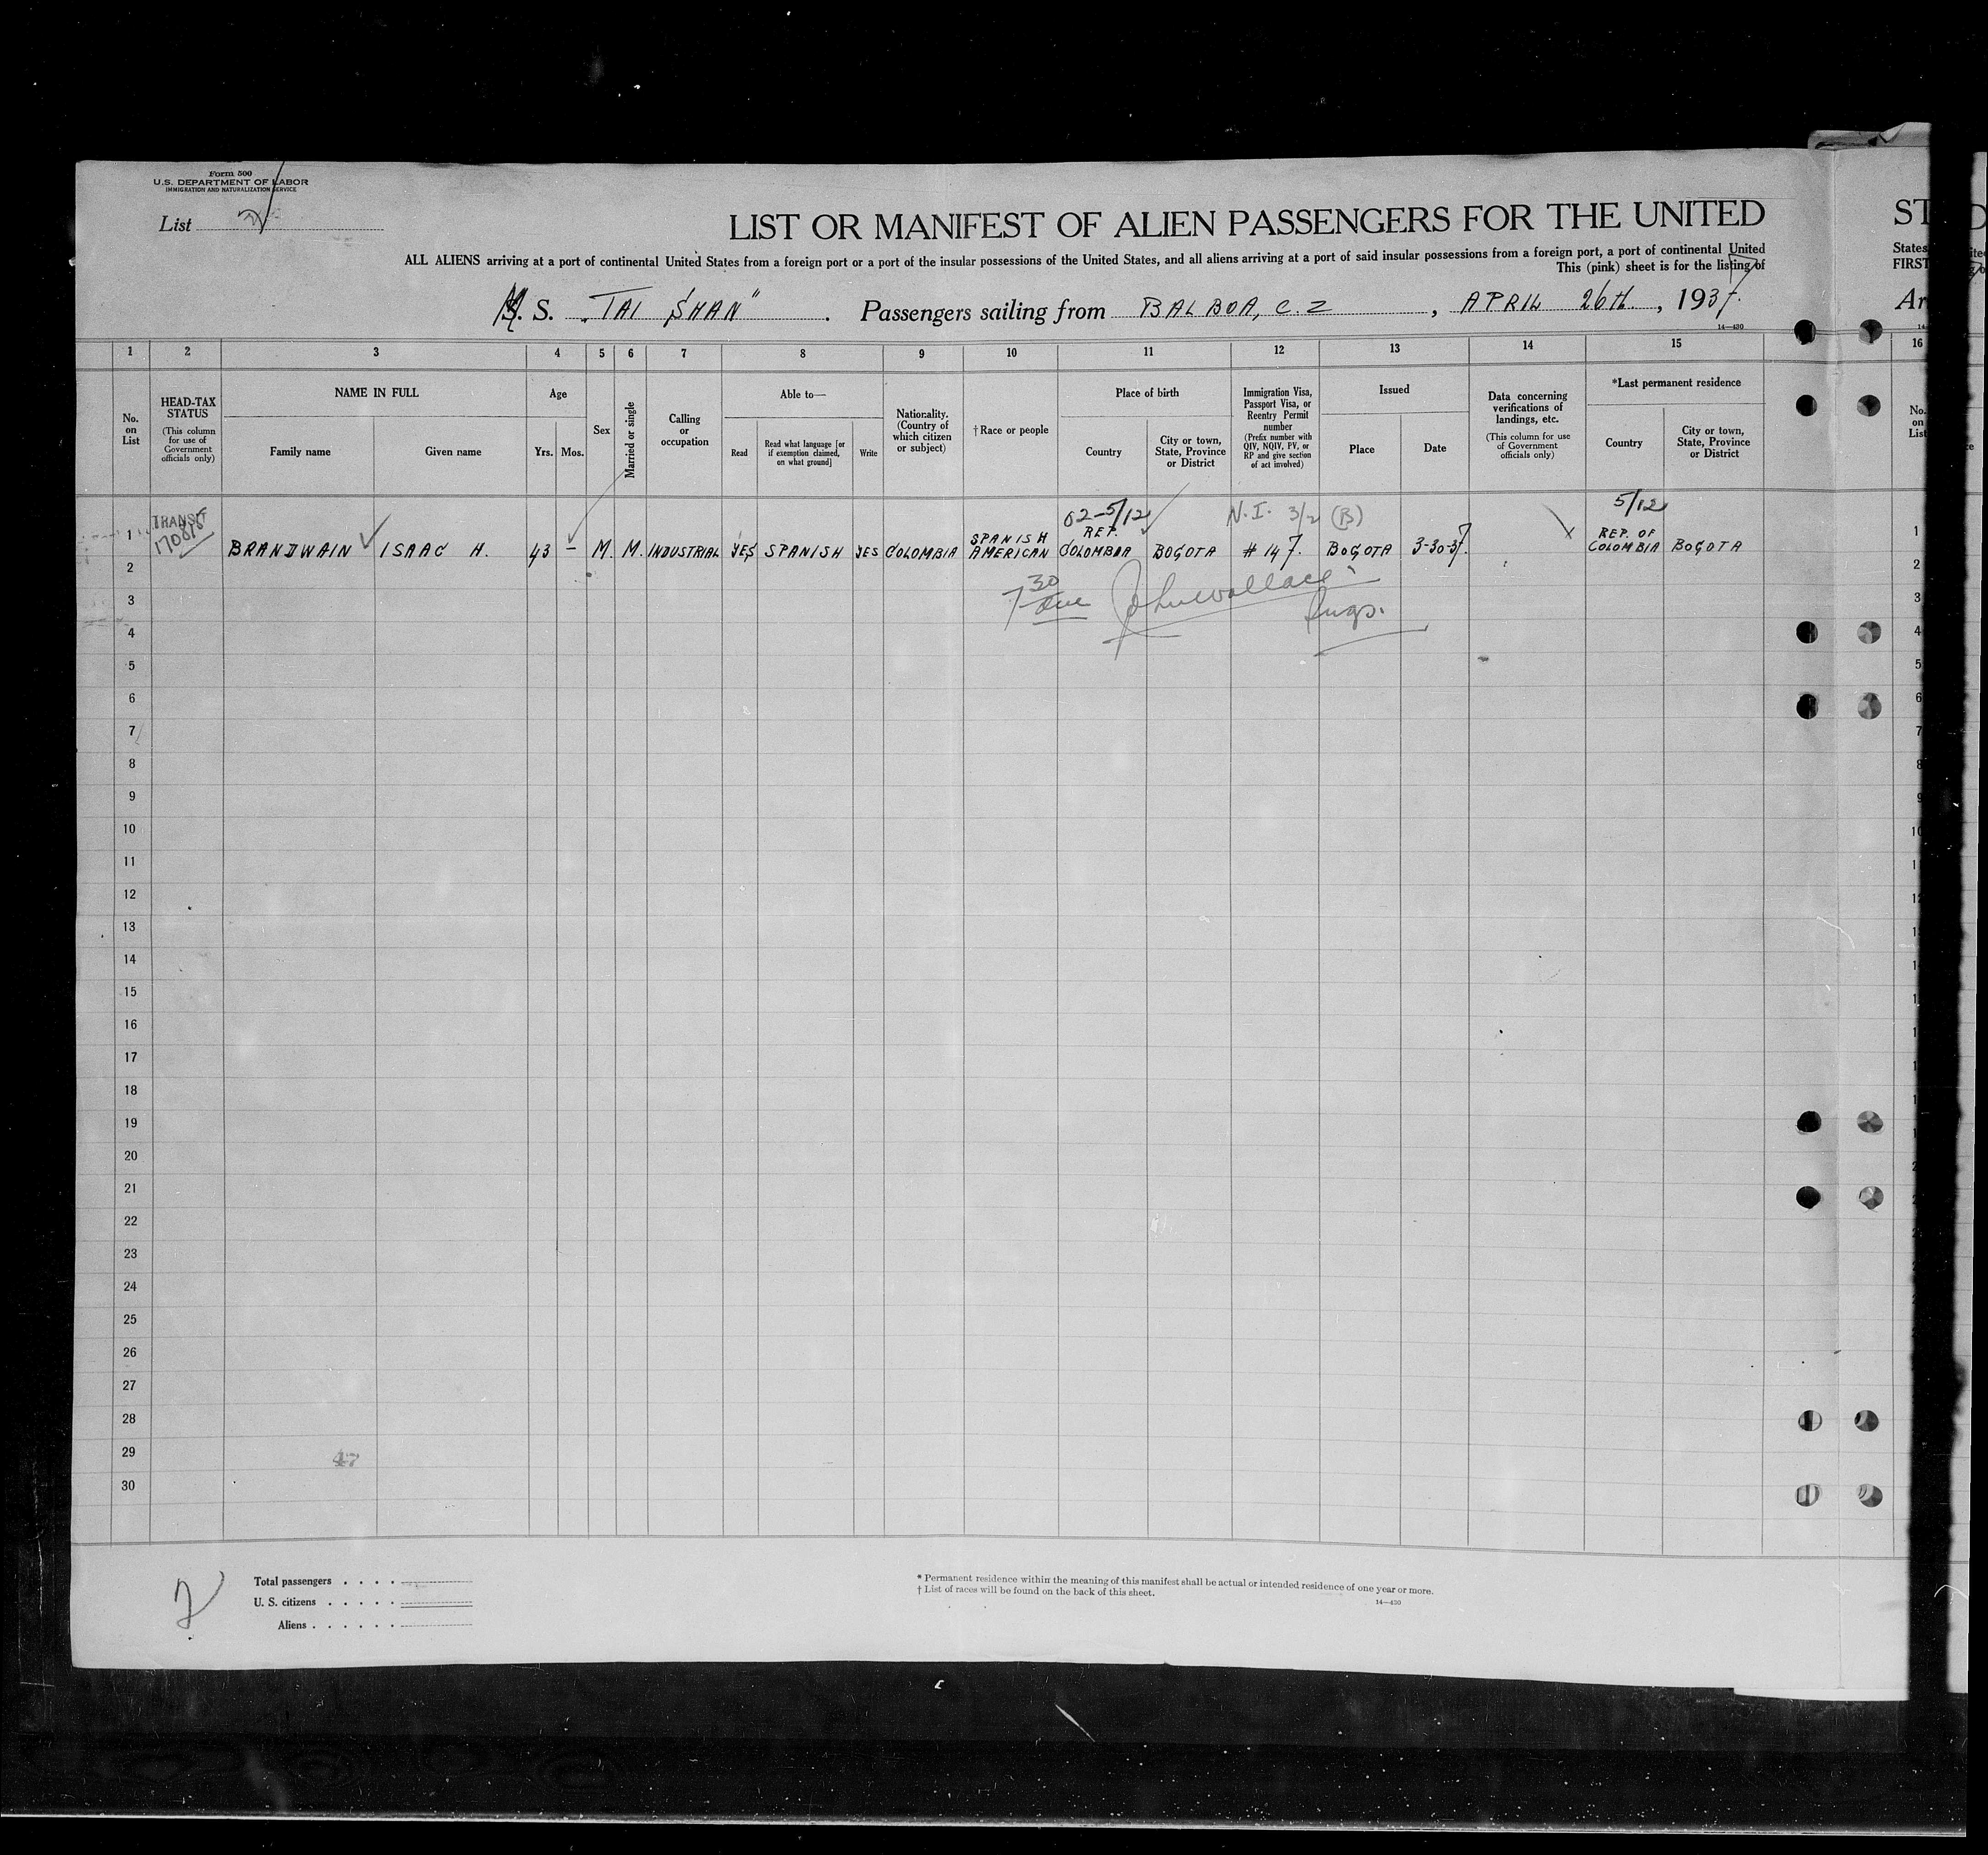 Form 500
U.S. DEPARTMENT OF LABOR
IMMIGRATION AND NATURALIZATION SERVICE
List 2
LIST OR MANIFEST OF ALIEN PASSENGERS FOR THE UNITED
ALL ALIENS arriving at a port of continental United States from a foreign port or a port of the insular possessions of the United States, and all aliens arriving at a port of said insular possessions from a foreign port, a port of continental United
This (pink) sheet is for the listing of
M. S. "TAI SHAN". Passengers sailing from BALBOA, C. Z, APRIL 26th, 1937.
14—430
1 2 3 4 5 6 7 8 9 10 11 12 13 14 15
No. on List
HEAD-TAX STATUS (This column for use of Government officials only)
NAME IN FULL
Family name
Given name
Age
Yrs.
Mos.
Sex
Married or single
Calling or occupation
Able to—
Read
Read what language [or if exemption claimed, on what ground]
Write
Nationality. (Country of which citizen or subject)
†Race or people
Place of birth
Country
City or town, State, Province or District
Immigration Visa, Passport Visa, or Reentry Permit number (Prefix number with QIV, NQIV, PV, or RP and give section of act involved)
Issued
Place
Date
Data concerning verifications of landings, etc. (This column for use of Government officials only)
*Last permanent residence
Country
City or town, State, Province or District
02-5/12 N.I. 3/2 (B) 5/12
1 TRANSIT 17081 BRANDWAIN ISAAC H. 43 – M. M. INDUSTRIAL YES SPANISH YES COLOMBIA SPANISH AMERICAN REP. COLOMBIA BOGOTA # 147. BOGOTA 3-30-37. REP. OF COLOMBIA BOGOTA
2
7 30 John Wallace
3
Insp.
4
5
6
7
8
9
10
11
12
13
14
15
16
17
18
19
20
21
22
23
24
25
26
27
28
29
47
30
2
Total passengers
U. S. citizens
Aliens
* Permanent residence within the meaning of this manifest shall be actual or intended residence of one year or more.
† List of races will be found on the back of this sheet.
14—430
ST
States
FIRST
Ar
16
No. on List
1
2
3
4
5
6
7
8
9
10